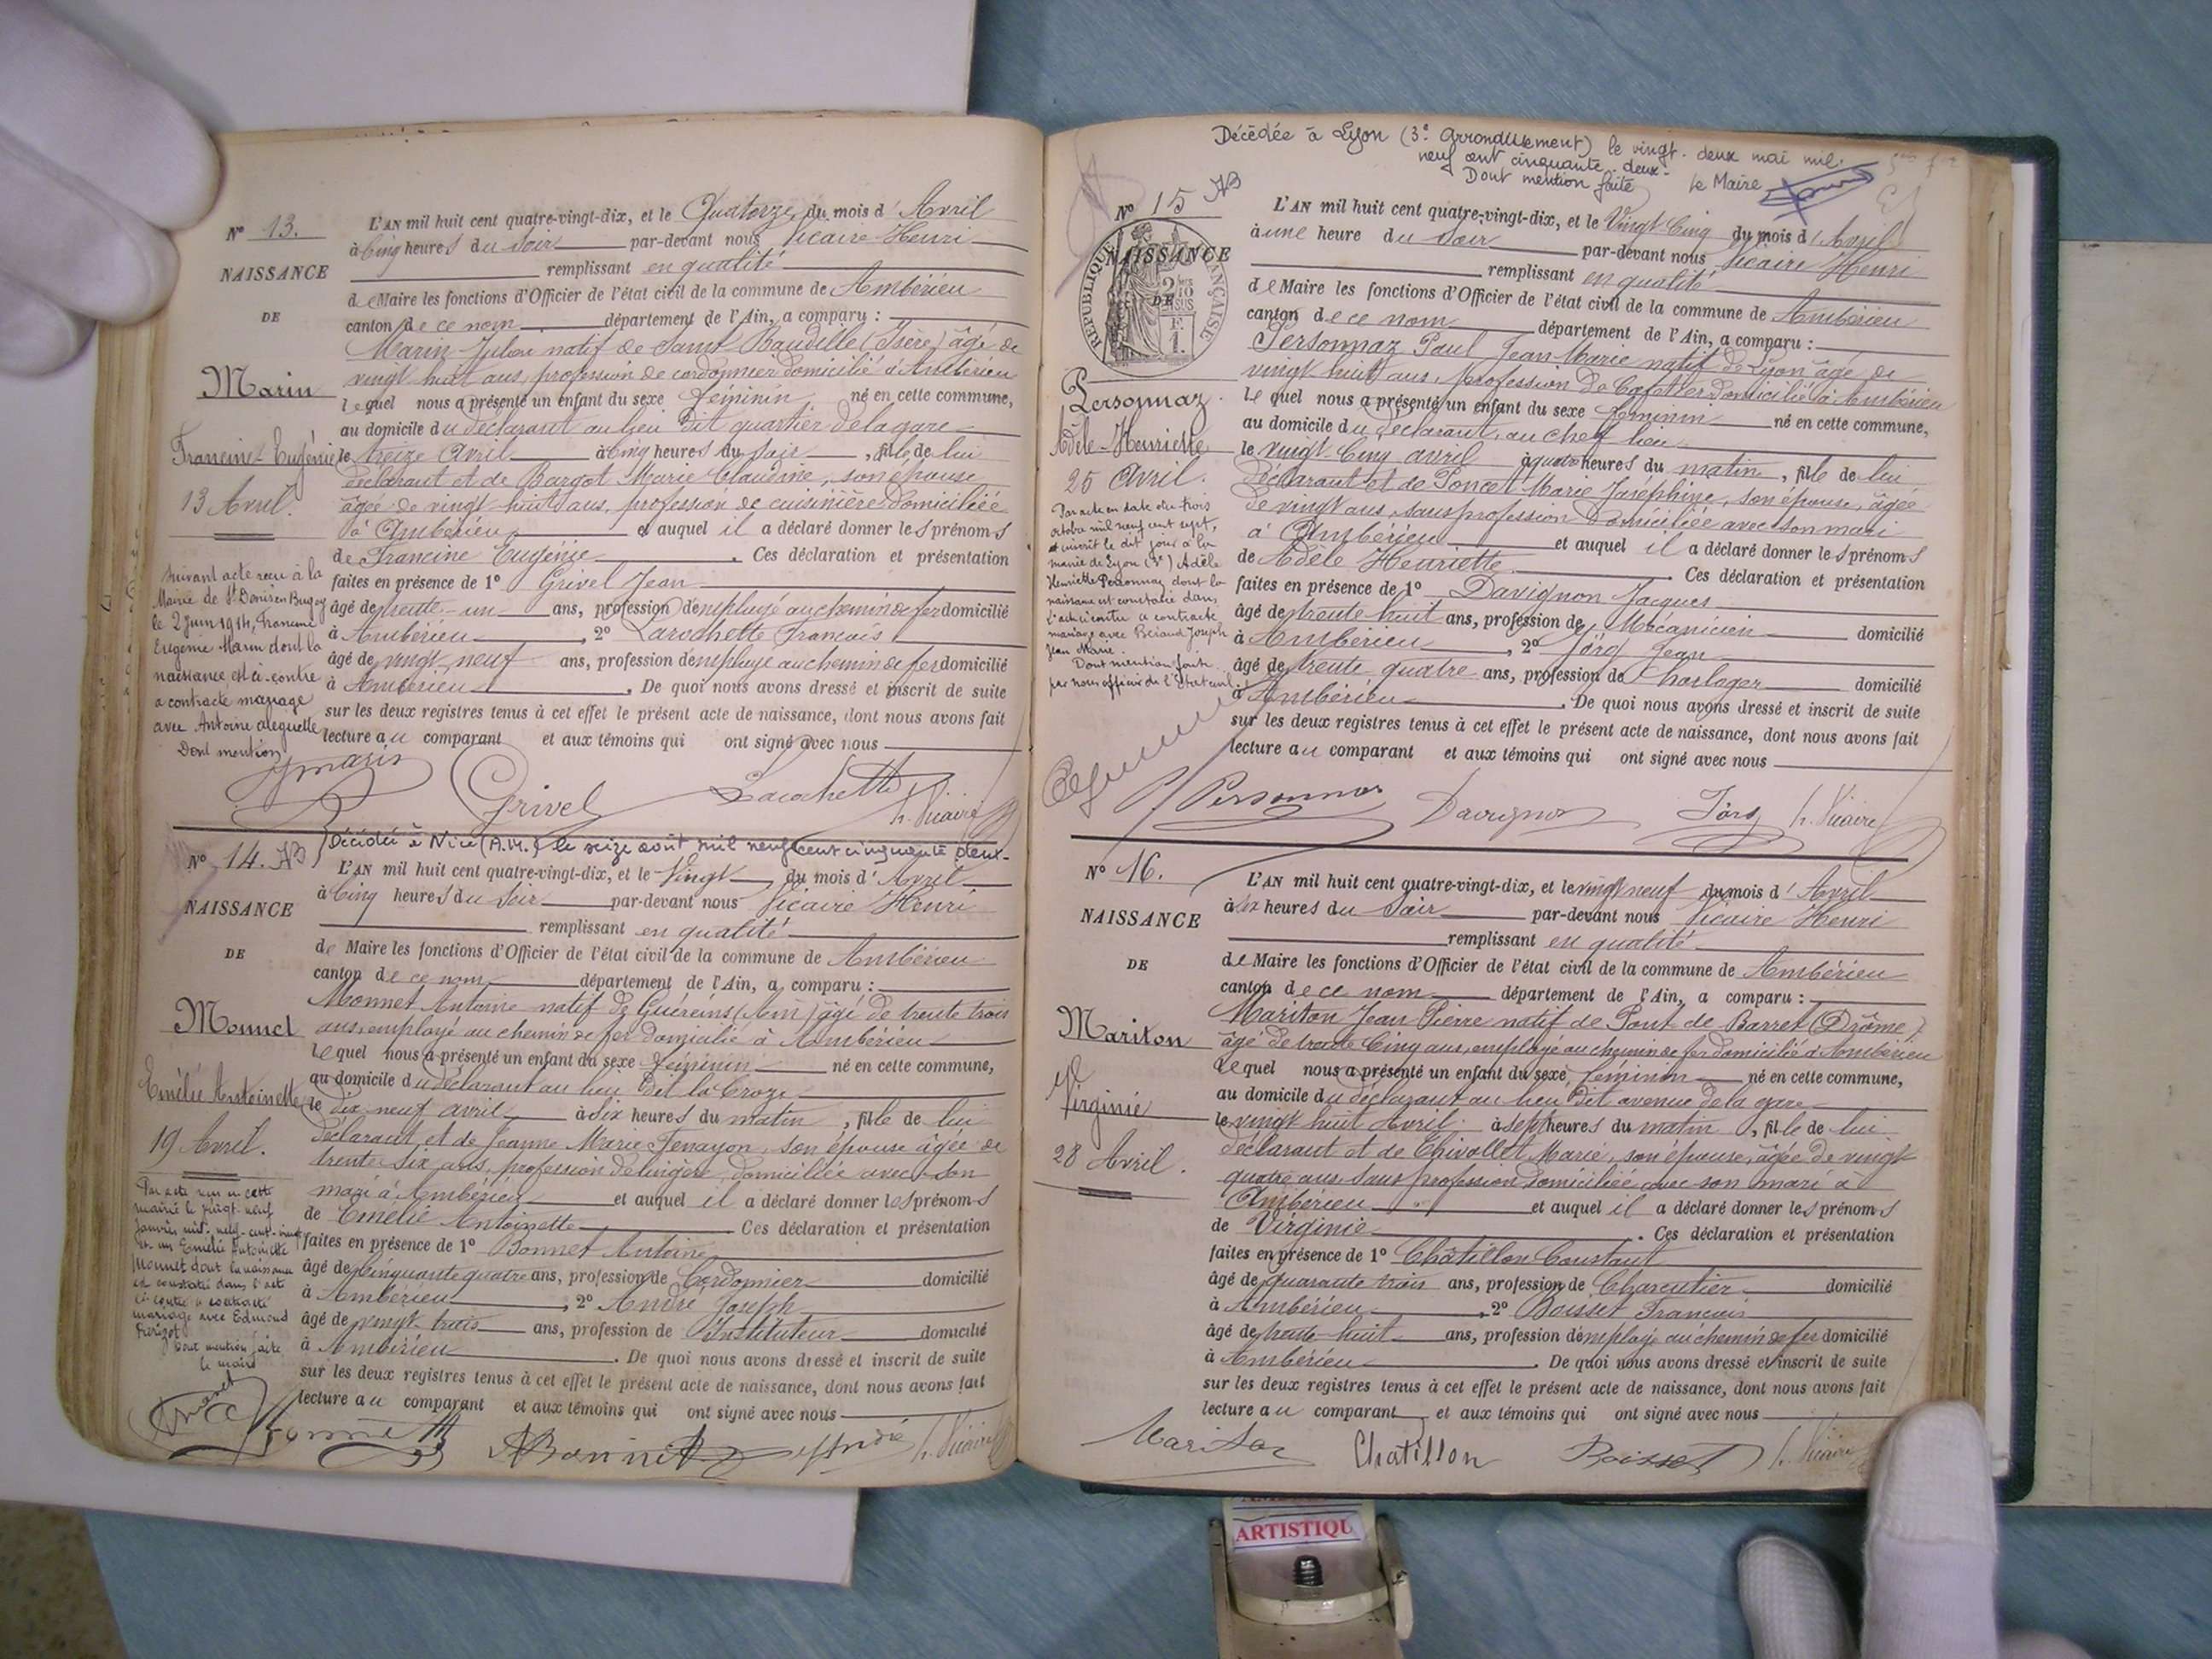 N° 13.
NAISSANCE
DE
Marin
Francine Eugénie
13 Avril.
Suivant acte reçu à la
Mairie de St Denis en Bugey
le 2 Juin 1914, Francine
Eugénie Marin dont la
naissance est ci-contre
a contracté mariage
avec Antoine
Dont mention
L'AN mil huit cent quatre-vingt-dix, et le Quatorze du mois d'Avril
à Cinq heures du soir par-devant nous Vicaire Henri
remplissant en qualité
de Maire les fonctions d'Officier de l'état civil de la commune de Ambérieu
canton de ce nom département de l'Ain, a comparu :
Marin natif de Saint Baudille (Isère) âgé de
vingt huit ans, profession de cordonnier domicilié à Ambérieu
lequel nous a présenté un enfant du sexe féminin né en cette commune,
au domicile du déclarant au lieu dit quartier de la gare
le treize Avril à cinq heures du soir, fille de lui
déclarant et de Bargot Marie Claudine, son épouse
âgée de vingt huit ans, profession de cuisinière domiciliée
à Ambérieu et auquel il a déclaré donner les prénoms
de Francine Eugénie. Ces déclaration et présentation
faites en présence de 1° Grivel Jean
âgé de trente-un ans, profession d'employé au chemin de fer domicilié
à Ambérieu, 2° Larochette François
âgé de vingt-neuf ans, profession d'employé au chemin de fer domicilié
à Ambérieu. De quoi nous avons dressé et inscrit de suite
sur les deux registres tenus à cet effet le présent acte de naissance, dont nous avons fait
lecture au comparant et aux témoins qui ont signé avec nous
Marin Grivel Larochette h. Vicaire
Décédée à Nice (A.M.) le seize août mil neuf cent cinquante deux.
N° 14.
NAISSANCE
DE
Monnet
Emélie Antoinette
19 Avril.
Par acte reçu en cette
mairie le vingt-neuf
janvier mil-neuf-cent-vingt
et un Emélie Antoinette
Monnet dont la naissance
est constatée dans l'acte
ci-contre a contracté
mariage avec Edmond
Dont mention faite
le maire
L'AN mil huit cent quatre-vingt-dix, et le Vingt du mois d'Avril
à Cinq heures du soir par-devant nous Vicaire Henri
remplissant en qualité
de Maire les fonctions d'Officier de l'état civil de la commune de Ambérieu
canton de ce nom département de l'Ain, a comparu :
Monnet Antoine natif de Guéreins (Ain) âgé de trente trois
ans, employé au chemin de fer domicilié à Ambérieu
lequel nous a présenté un enfant du sexe féminin né en cette commune,
au domicile du déclarant au lieu dit la Croze
le dix neuf avril à six heures du matin, fille de lui
déclarant, et de Jeanne Marie Tenayon, son épouse âgée de
trente six ans, profession de lingère, domiciliée avec son
mari à Ambérieu et auquel il a déclaré donner les prénoms
de Emélie Antoinette Ces déclaration et présentation
faites en présence de 1° Bonnet Antoine
âgé de cinquante quatre ans, profession de Cordonnier domicilié
à Ambérieu, 2° André Joseph
âgé de vingt trois ans, profession de Instituteur domicilié
à Ambérieu. De quoi nous avons dressé et inscrit de suite
sur les deux registres tenus à cet effet le présent acte de naissance, dont nous avons fait
lecture au comparant et aux témoins qui ont signé avec nous
Monnet A Bonnet André h. Vicaire
Décédée à Lyon (3e arrondissement) le vingt-deux mai mil
neuf cent cinquante-deux.
Dont mention faite le Maire
N° 15
NAISSANCE
DE
RÉPUBLIQUE FRANÇAISE
Personnaz
Adèle-Henriette
25 Avril.
Par acte en date du trois
octobre mil neuf cent sept,
inscrit le dit jour à la
mairie de Lyon Adèle
Henriette Personnaz, dont la
naissance est constatée dans
l'acte ci-contre a contracté
mariage avec Béraud Joseph
Jean Marie.
Dont mention faite
par nous officier de l'état civil.
L'AN mil huit cent quatre-vingt-dix, et le Vingt Cinq du mois d'Avril
à une heure du soir par-devant nous Vicaire Henri
remplissant en qualité
de Maire les fonctions d'Officier de l'état civil de la commune de Ambérieu
canton de ce nom département de l'Ain, a comparu :
Personnaz Paul Jean-Marie natif de Lyon âgé de
vingt huit ans, profession de Cafetier domicilié à Ambérieu
lequel nous a présenté un enfant du sexe féminin né en cette commune,
au domicile du déclarant, au chef lieu
le vingt Cinq avril à quatre heures du matin, fille de lui
Déclarant et de Poncet Marie Joséphine, son épouse, âgée
de vingt ans, sans profession domiciliée avec son mari
à Ambérieu et auquel il a déclaré donner les prénoms
de Adèle Henriette. Ces déclaration et présentation
faites en présence de 1° Davignon Jacques
âgé de trente huit ans, profession de Mécanicien domicilié
à Ambérieu, 2° Jörg Jean
âgé de trente quatre ans, profession de Horloger domicilié
à Ambérieu. De quoi nous avons dressé et inscrit de suite
sur les deux registres tenus à cet effet le présent acte de naissance, dont nous avons fait
lecture au comparant et aux témoins qui ont signé avec nous
P Personnaz Davignon Jörg h. Vicaire
N° 16.
NAISSANCE
DE
Mariton
Virginie
28 Avril.
L'AN mil huit cent quatre-vingt-dix, et le vingt neuf du mois d'Avril
à six heures du soir par-devant nous Vicaire Henri
remplissant en qualité
de Maire les fonctions d'Officier de l'état civil de la commune de Ambérieu
canton de ce nom département de l'Ain, a comparu :
Mariton Jean Pierre natif de Pont de Barret (Drôme)
âgé de trente Cinq ans, employé au chemin de fer domicilié à Ambérieu
lequel nous a présenté un enfant du sexe féminin né en cette commune,
au domicile du déclarant au lieu dit avenue de la gare
le vingt huit Avril à sept heures du matin, fille de lui
déclarant et de Chivollet Marie, son épouse, âgée de vingt
quatre ans sans profession domiciliée avec son mari à
Ambérieu et auquel il a déclaré donner les prénoms
de Virginie. Ces déclaration et présentation
faites en présence de 1° Châtillon Constant
âgé de quarante trois ans, profession de Charcutier domicilié
à Ambérieu, 2° Boisset François
âgé de trente-huit ans, profession d'employé au chemin de fer domicilié
à Ambérieu. De quoi nous avons dressé et inscrit de suite
sur les deux registres tenus à cet effet le présent acte de naissance, dont nous avons fait
lecture au comparant et aux témoins qui ont signé avec nous
Mariton Chatillon Boisset h. Vicaire
ARTISTIQU